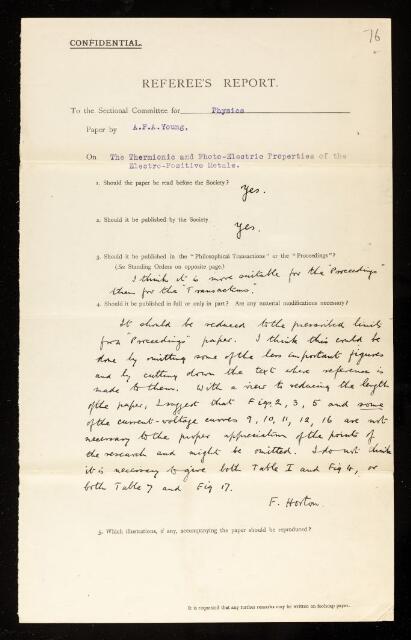 76
CONFIDENTIAL.
REFEREE'S REPORT.
To the Sectional Committee for Physics
Paper by A.F.A.Young.
On The Thermionic and Photo-Electric Properties of the
Electro-Positive Metals.
1. Should the paper be read before the Society?
Yes.
2. Should it be published by the Society
Yes.
3. Should it be published in the "Philosophical Transactions" or the "Proceedings"?
(See Standing Orders on opposite page.)
I think it is more suitable for the "Proceedings"
than for the "Transactions".
4. Should it be published in full or only in part? Are any material modifications necessary?
It should be reduced to the prescribed limits
for a "Proceedings" paper. I think this could be
done by omitting some of the less important figures
and by cutting down the text where reference is
made to them. With a view to reducing the length
of the paper, I suggest that Figs. 2, 3, 5 and some
of the current-voltage curves 9, 10, 11, 12, 16 are not
necessary to the proper appreciation of the points of
the research and might be omitted. I do not think
it is necessary to give both Table I and Fig 4, or
both Table 7 and Fig 17.
F. Horton.
5. Which illustrations, if any, accompanying the paper should be reproduced?
It is requested that any further remarks may be written on foolscap paper.